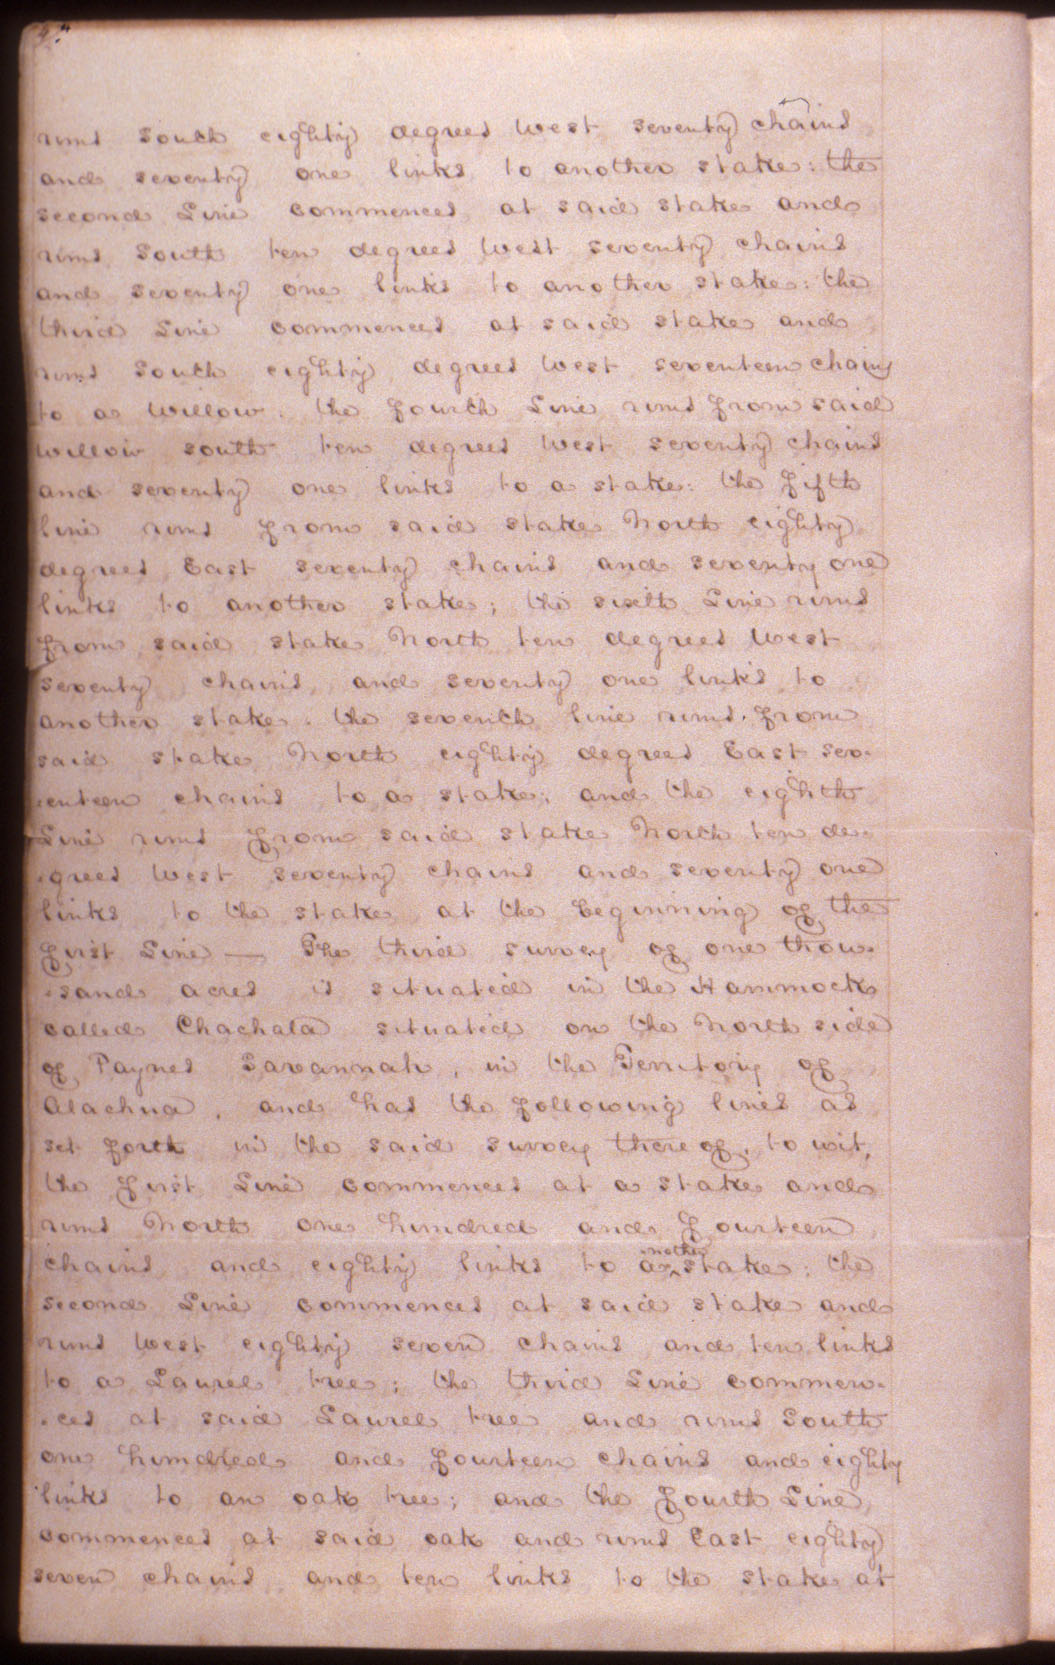 runs South eighty degrees West seventy chains
and seventy one links to another stake: the
second Line commences at said stake and
runs South ten degrees West seventy chains
and seventy one links to another stake: the
third Line commences at said stake and
runs South eighty degrees West seventeen chains
to a Willow. the fourth Line runs from said
Willow south ten degrees West seventy chains
and seventy one links to a stake: the fifth
line runs from said stake North eighty
degrees East seventy chains and seventy one
links to another stake; the sixth Line runs
from said stake North ten degrees West
seventy chains and seventy one links to
another stake. the seventh line runs from
said stake North eighty degrees East sev-
-enteen chains to a stake; and the eighth
Line runs from said stake North ten de-
-grees West seventy chains and seventy one
links to the stake at the beginning of the
first Line — The third survey of one thou-
-sand acres is situated in the Hammock
called Chachala situated on the North side
of Paynes Savannah, in the Territory of
Alachua, and has the following lines as
set forth in the said survey thereof, to wit,
the first Line commences at a stake and
runs North one hundred and fourteen
chains and eighty links to another stake: the
second Line commences at said stake and
runs West eighty seven chains and ten links
to a Laurel tree; the third Line commen-
-ces at said Laurel tree and runs South
one hundred and fourteen chains and eighty
links to an oak tree; and the fourth Line,
commences at said oak and runs East eighty
seven chains and ten links to the stake at